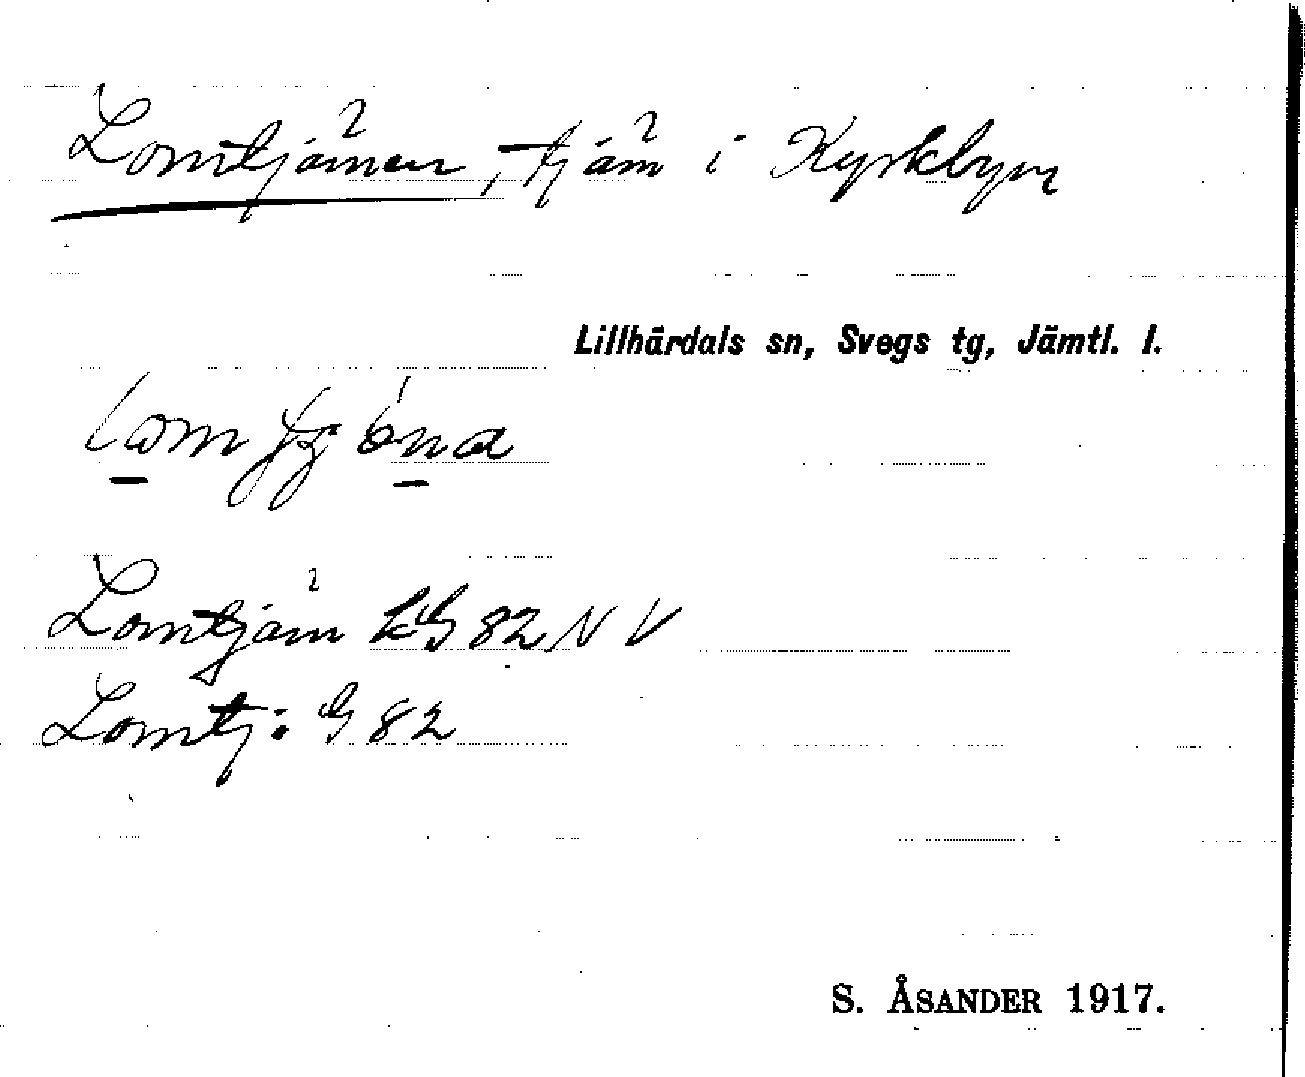 Lomtjärnen, tjärn i Kyrkbyn
Lillhärdals sn, Svegs tg, Jämtl. l.
Lomtjärn LG 82 NV
Lomtj: G 82
S. ÅSANDER 1917.